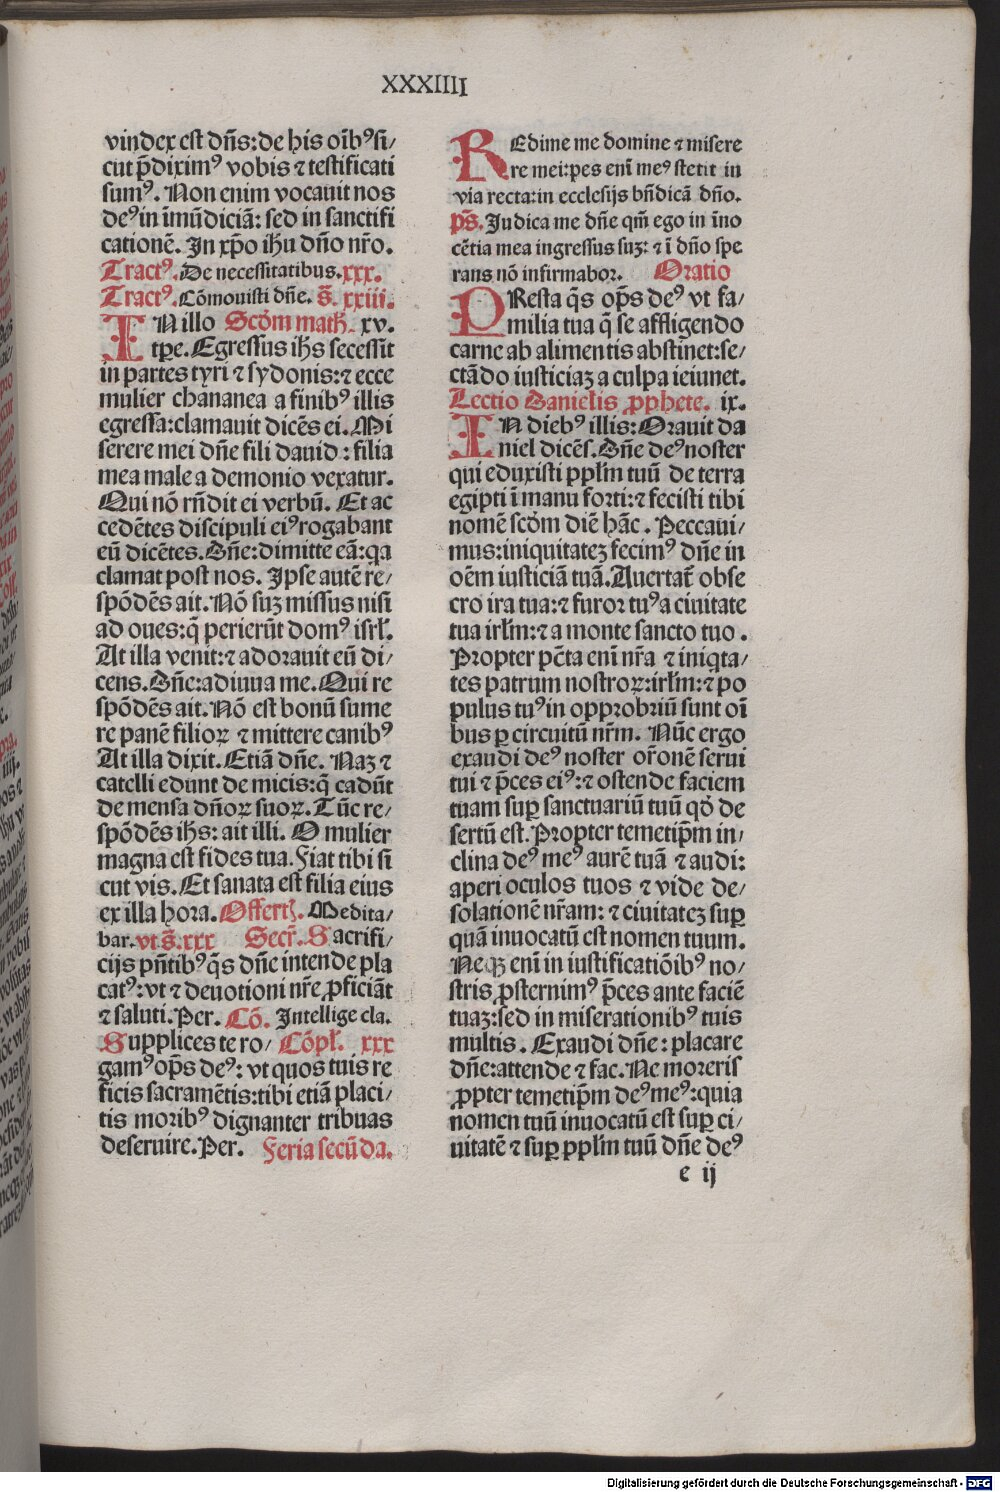 XXXIIII
vindex est dn̄s: de his oīb⁹ si/
cut p̄dixim⁹ vobis ⁊ testificati
sum⁹. Non enim vocauit nos
de⁹ in īmūdiciā: sed in sanctifi
cationē. In xp̄o ih̄u dn̄o nr̄o.
Tract⁹. De necessitatibus. xxx.
Tract⁹. Cōmouisti dn̄e. s̄. xxiii.
IN illo Scd̄m math̄. xv.
tꝑe. Egressus ih̄s secessit
in partes tyri ⁊ sydonis: ⁊ ecce
mulier chananea a finib⁹ illis
egressa: clamauit dicēs ei. Mi
serere mei dn̄e fili dauid: filia
mea male a demonio vexatur.
Qui nō rn̄dit ei verbū. Et ac
cedētes discipuli ei⁹ rogabant
eū dicētes. Dn̄e: dimitte eā: qa
clamat post nos. Ipse autē re/
spōdēs ait. Nō suꝫ missus nisi
ad oues: q̄ perierūt dom⁹ isrl̄.
At illa venit: ⁊ adorauit eū di/
cens. Dn̄e: adiuua me. Qui re
spōdēs ait. Nō est bonū sume
re panē filioꝝ ⁊ mittere canib⁹
At illa dixit. Etiā dn̄e. Naꝫ ⁊
catelli edunt de micis: q̄ cadūt
de mensa dn̄oꝝ suoꝝ. Tūc re/
spōdēs ih̄s: ait illi. O mulier
magna est fides tua. Fiat tibi si
cut vis. Et sanata est filia eius
ex illa hora. Offerth̄. Medita/
bar. vt s̄. xxx Secr̄. Sacrifi/
cijs pn̄tib⁹ q̄s dn̄e intende pla
cat⁹: vt ⁊ deuotioni nr̄e ꝓficiāt
⁊ saluti. Per. Cō. Intellige cla.
Supplices te ro/ Cōpl̄. xxx
gam⁹ op̄s de⁹: vt quos tuis re
ficis sacramētis: tibi etiā placi/
tis morib⁹ dignanter tribuas
deseruire. Per. Feria secūda.
REdime me domine ⁊ misere
re mei: pes enī me⁹ stetit in
via recta: in ecclesijs bn̄dicā dn̄o.
ps̄. Iudica me dn̄e qm̄ ego in īno
cētia mea ingressus suꝫ: ⁊ ī dn̄o spe
rans nō infirmabor. Oratio
PResta q̄s op̄s de⁹ vt fa/
milia tua q̄ se affligendo
carne ab alimentis abstinet: se/
ctādo iusticiaꝫ a culpa ieiunet.
Lectio Danielis ꝓphete. ix.
IN dieb⁹ illis: Orauit da
niel dicēs. Dn̄e de⁹ noster
qui eduxisti ppl̄m tuū de terra
egipti ī manu forti: ⁊ fecisti tibi
nomē scd̄m diē hāc. Peccaui/
mus: iniquitateꝫ fecim⁹ dn̄e in
oēm iusticiā tuā. Auertat̄ obse
cro ira tua: ⁊ furor tu⁹ a ciuitate
tua irl̄m: ⁊ a monte sancto tuo.
Propter pc̄ta enī nr̄a ⁊ iniqta/
tes patrum nostroꝝ: irl̄m: ⁊ po
pulus tu⁹ in opprobriū sunt oī
bus ꝑ circuitū nr̄m. Nūc ergo
exaudi de⁹ noster or̄onē serui
tui ⁊ p̄ces ei⁹: ⁊ ostende faciem
tuam suꝑ sanctuariū tuū qd̄ de
sertū est. Propter temetip̄m in/
clina de⁹ me⁹ aurē tuā ⁊ audi:
aperi oculos tuos ⁊ vide de/
solationē nr̄am: ⁊ ciuitateꝫ suꝑ
quā inuocatū est nomen tuum.
Neqꝫ enī in iustificatiōib⁹ no/
stris ꝓsternim⁹ p̄ces ante faciē
tuaꝫ: sed in miserationib⁹ tuis
multis. Exaudi dn̄e: placare
dn̄e: attende ⁊ fac. Ne moreris
ꝓpter temetip̄m de⁹ me⁹: quia
nomen tuū inuocatū est suꝑ ci/
uitatē ⁊ suꝑ ppl̄m tuū dn̄e de⁹
e ij
Digitalisierung gefördert durch die Deutsche Forschungsgemeinschaft - DFG